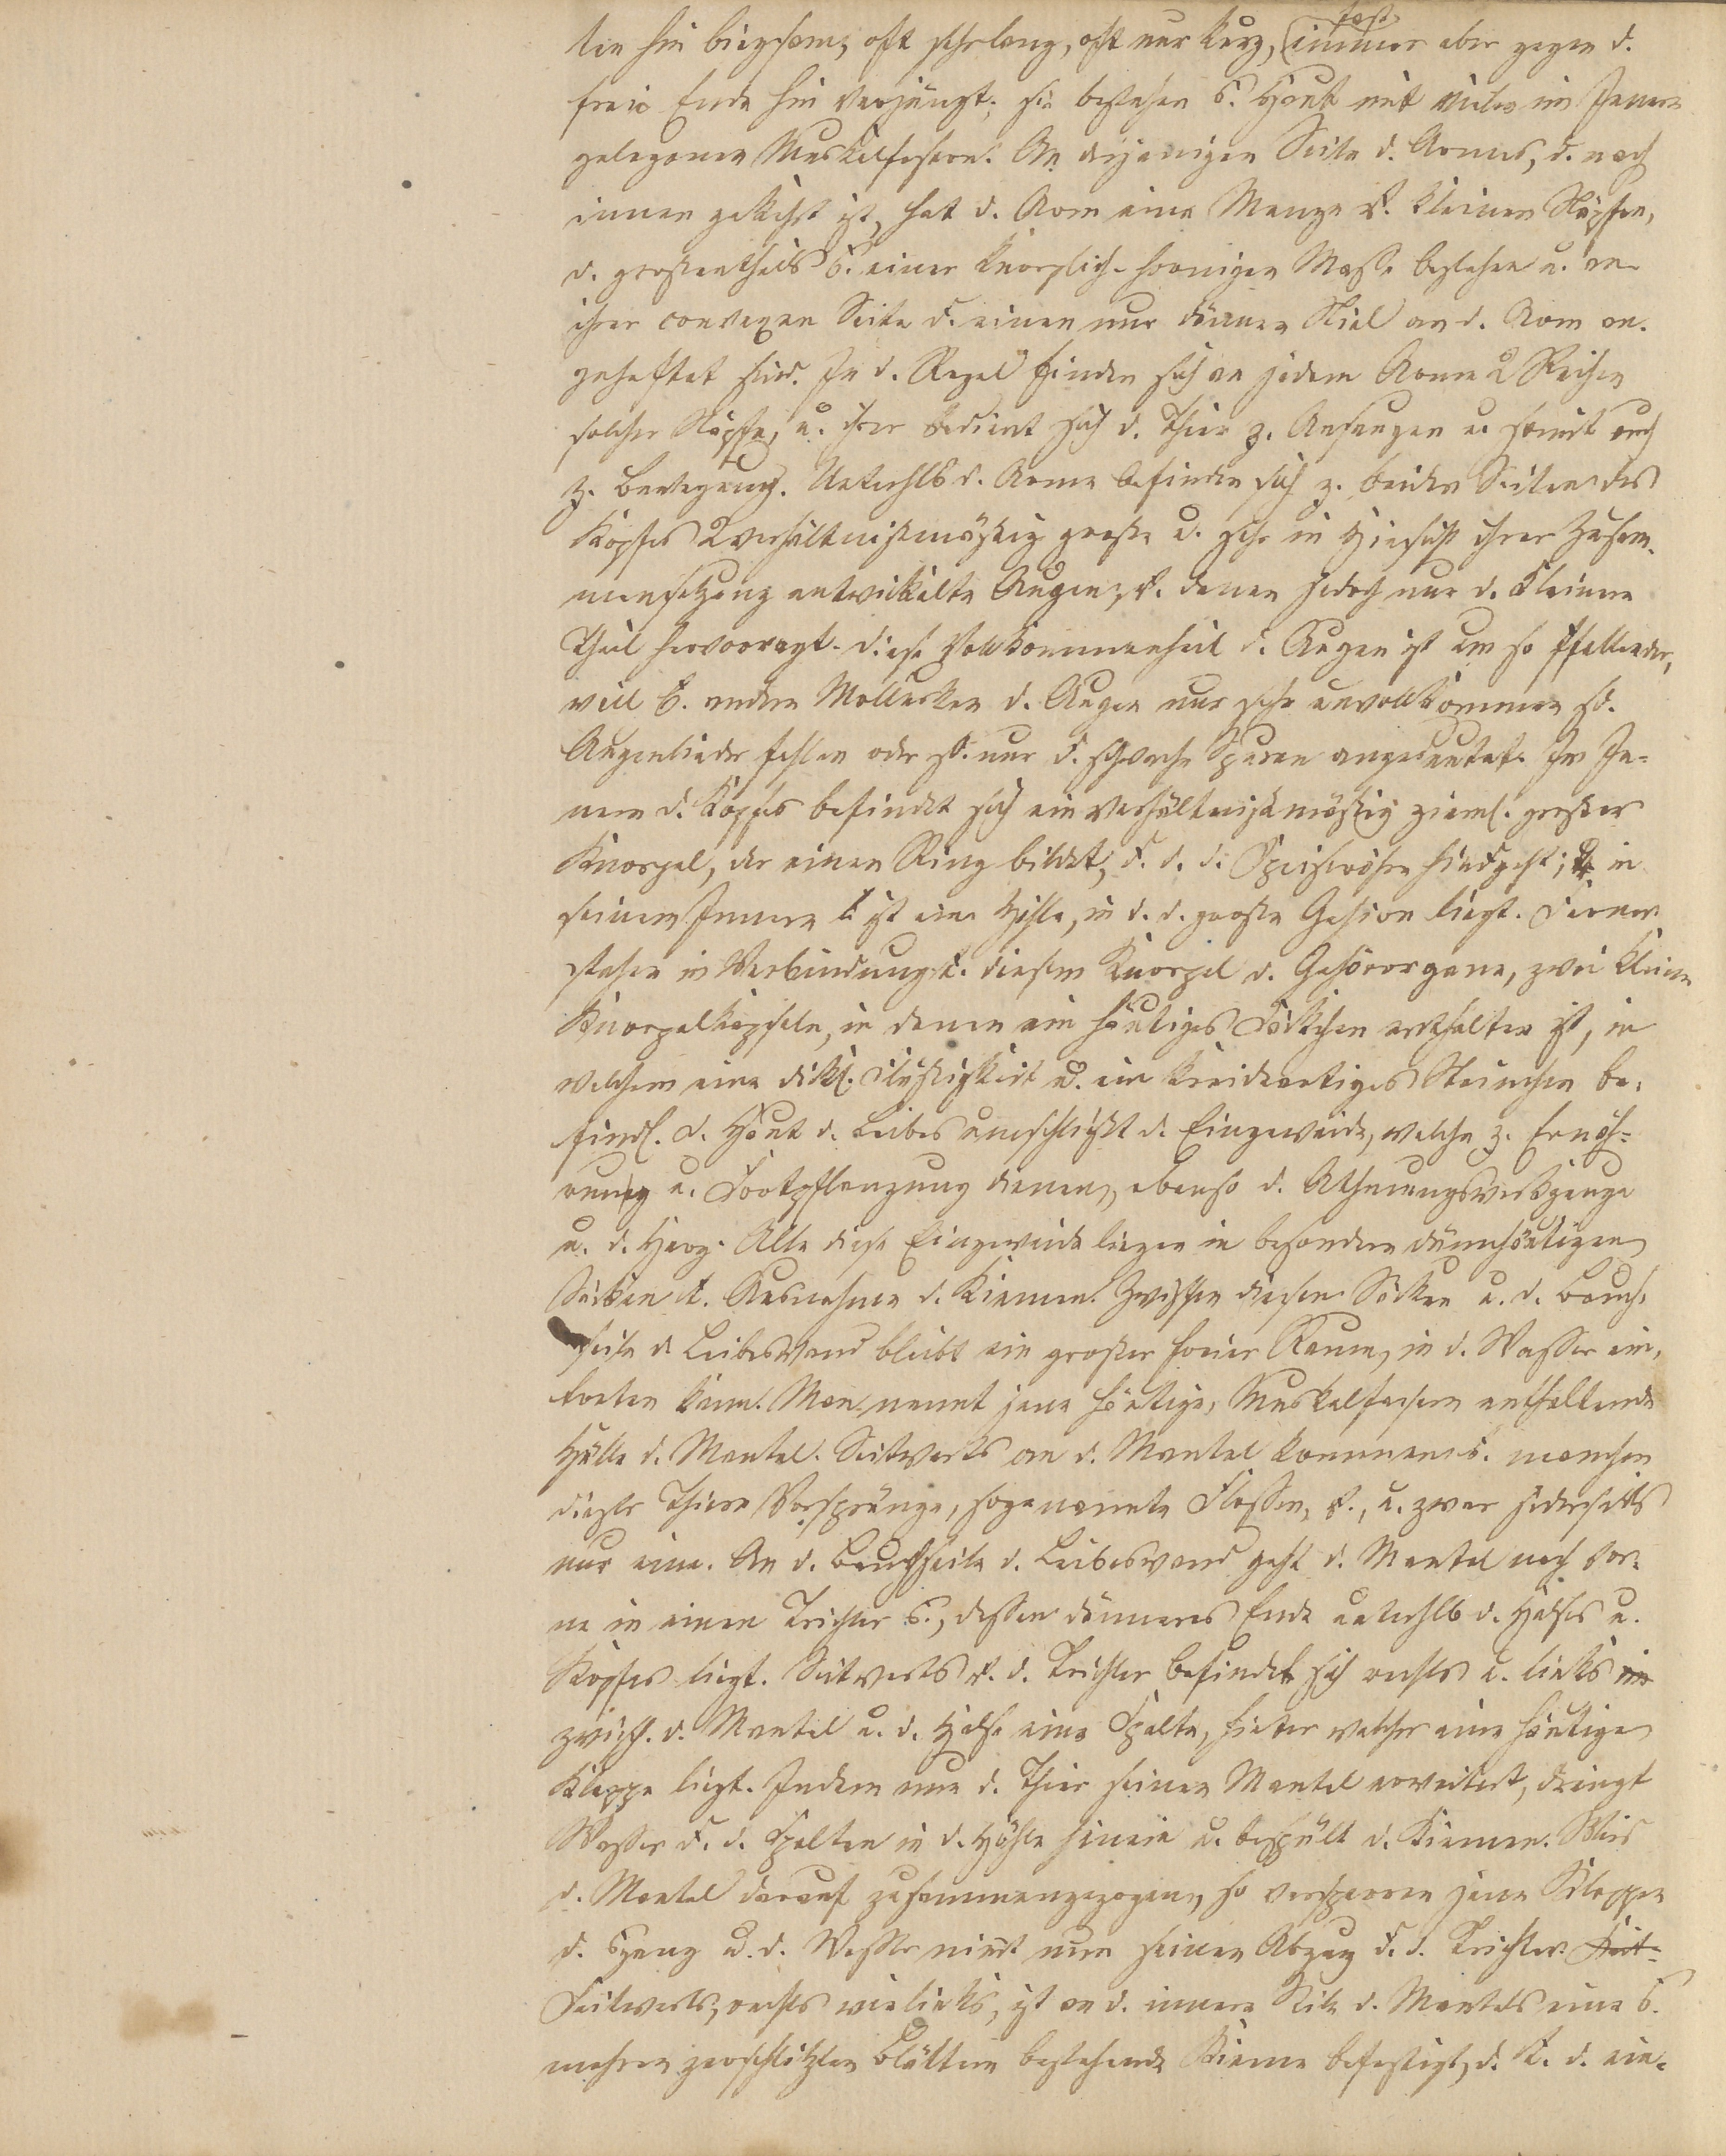 ten hin biegsam; oft sehr lang, oft nur kurz, fast immer aber gegen d.
freie Ende hin verjüngt; sie bestehen b. Haut mit vielen im Innern
gelegenen Muskelfasern. An derjenigen Seite d. Armes, d. nach
innen gekehrt ist, hat d. Arm eine Menge v. kleinen Näpfen,
d. grossentheils b. einer knorplich-hornigen Masse bestehen u. an
ihrer convexen Seite d. einen nur dünnen Stiel an d. Arm an-
geheftet sind. In d. Regel finden sich an jedem Arme 2 Reihen
solcher Näpfe, u. ihrer bedient sich d. Thier z. Ansaugen u. somit auch
z. Bewegung. Unterhlb d. Arme befinden sich z. beiden Seiten des
Kopfes 2 verhältnissmässig grosse u. sehr in Hinsicht ihrer Zusam-
mensetzung entwickelte Augen, v. denen jedoch nur d. kleinere
Theil hervorragt. Diese Vollkommenheit d. Augen ist um so ffallender,
weil b. andern Mollusken d. Augen nur sehr unvollkommen sd.
Augenlieder fehlen oder sd. nur d. schwache Spuren angedeutet. Im In-
nern d. Kopfes befindet sich ein verhältnissmässig zieml. grosser
Knorpel, der einen Ring bildet, d. d. d. Speiseröhre hindgeht; in
seinem Innern ist eine Höhle, in d. d. grosse Gehirn liegt. Ferner
stehen in Verbindung t. diesem Knorpel d. Gehörorgane, zwei kleine
Knorpelkapseln, in denen ein häutiges Säckchen enthalten ist, in
welchem eine dickl. Flüssigkeit u. ein kreideartiges Steinchen be-
findl. D. Haut d. Leibes umschliesst d. Eingeweide, welche z. Ernäh-
rung u. Fortpflanzung dienen, ebenso d. Athmungswerkzeuge
u. d. Herz. Alle diese Eingeweide liegen in besondern dünnhäutigen
Säcken t. Ausnahme d. Kiemen. Zwischen diesen Säcken u. d. Bauch-
seite d. Leibeswand bleibt ein grosser freier Raum, in d. Wasser ein-
treten kann. Man nennt jene häutige, Muskelfasern enthaltende
Hülle d. Mantel. Seitwärts an d. Mantel kommen b. manchen
dieser Thiere Vorsprünge, sogenannte Flossen, v., u. zwar jederseits
nur eine. An d. Bauchseite d. Leibeswand geht d. Mantel nach vor-
ne in einen Trichter b., dessen dünneres Ende unterhlb d. Halses u.
Kopfes liegt. Seitwärts v. d. Trichter befindet sich rechts u. links
zwisch. d. Mantel u. d. Halse eine Spalte, hinter welcher eine häutige
Klappe liegt. Indem nun d. Thier seinen Mantel erweitert, dringt
Wasser d. d. Spalten in d. Höhle hinein u. bespült d. Kiemen. Wird
d. Mantel darauf zusammengezogen, so versperren jene Klappen
d. Gang u. d. Wasser nimt nun seinen Abzug d. d. Trichter. Seit-
Seitwärts, rechts wie links, ist an d. innern Seite d. Mantels eine b.
mehren zerschlitzten Blättern bestehende Kieme befestigt, d. t. d. ein-